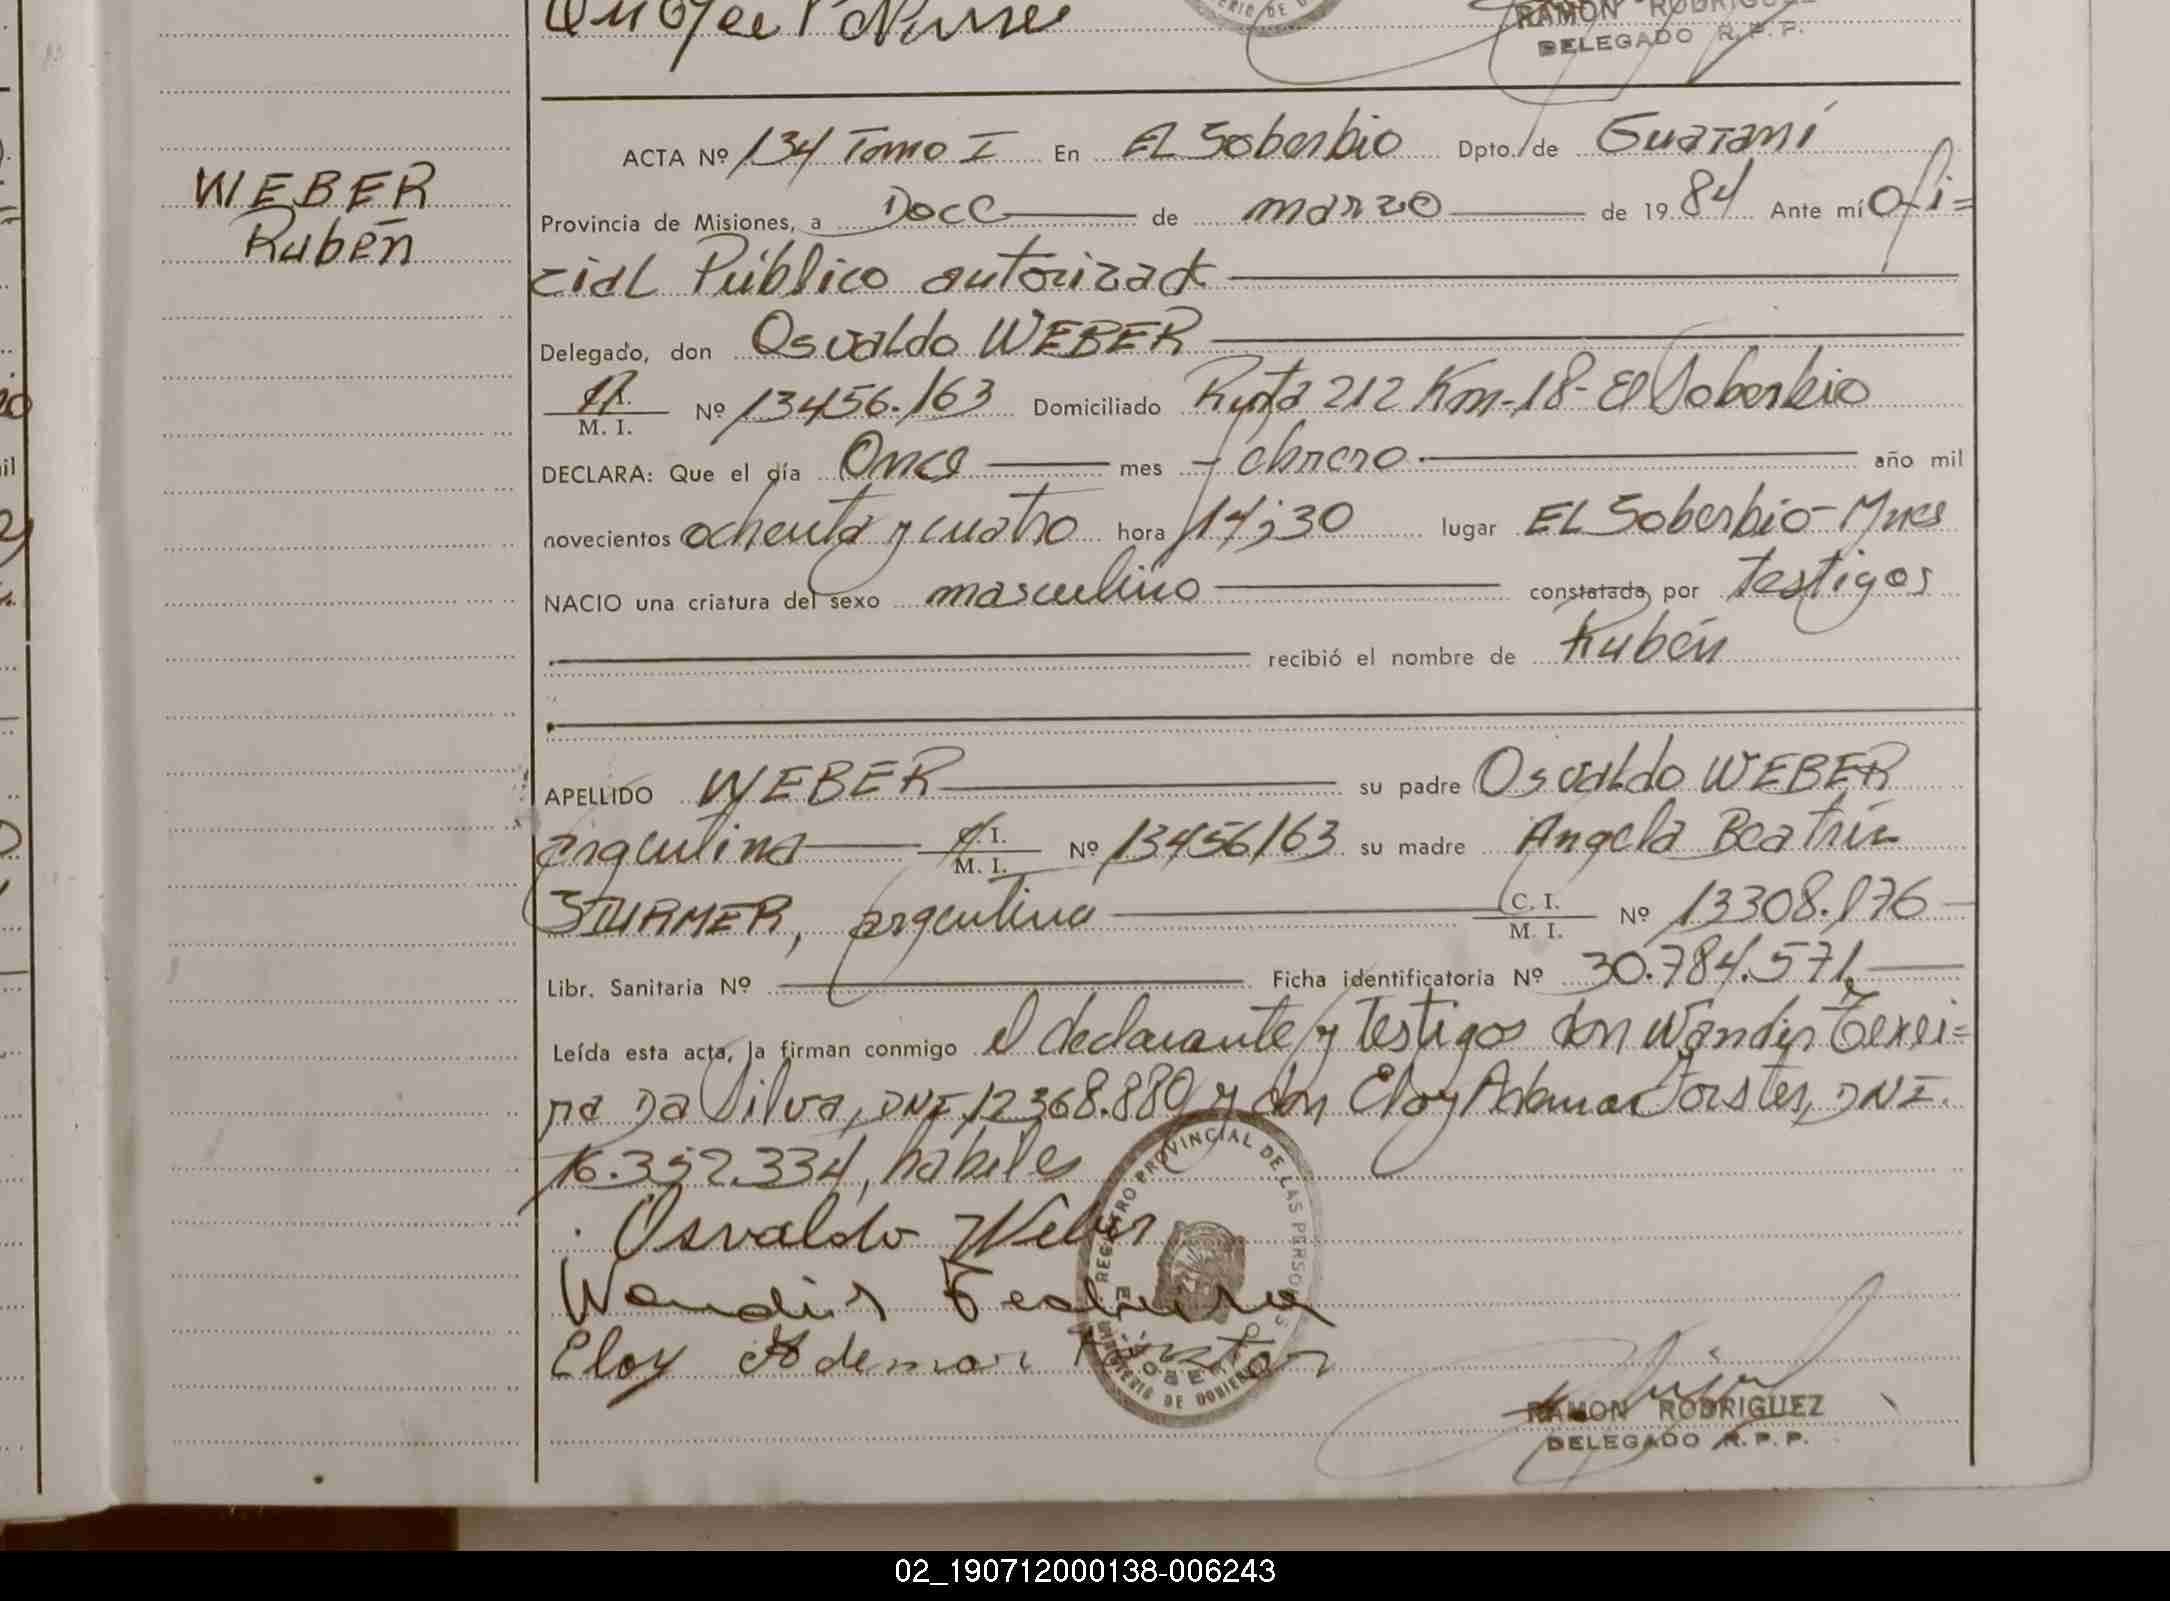 RAMON RODRIGUEZ
DELEGADO R. P. P.
WEBER
Rubén
ACTA Nº 134 Tomo I En EL Soberbio Dpto. de Guaraní
Provincia de Misiones, a Doce de marzo de 1984 Ante mí Ofi=
cial Público autorizado
Delegado, don Osvaldo WEBER
C.I.
M. I. Nº 13456.163 Domiciliado Ruta 212 Km-18- El Soberbio
DECLARA: Que el día Once mes febrero año mil
novecientos ochenta y cuatro hora 14;30 lugar EL Soberbio-Mnes
NACIO una criatura del sexo masculino constatada por testigos
recibió el nombre de Rubén
APELLIDO WEBER su padre Osvaldo WEBER
argentino C.I.
M. I. Nº 13456163 su madre Angela Beatriz
STURMER, argentina C. I.
M. I. Nº 13308.176
Libr. Sanitaria Nº Ficha identificatoria Nº 30.784.571
Leída esta acta, la firman conmigo el declarante y testigos don Wandir Texei=
ra Da Silva, DNI 12368.880 y don Eloy Ademar Forster, DNI.
16.352.334, habiles
Osvaldo Weber
Wandir
Eloy Ademar
REGISTRO PROVINCIAL DE LAS PERSONAS
MINISTERIO DE GOBIERNO
RAMON RODRIGUEZ
DELEGADO R. P. P.
02_190712000138-006243